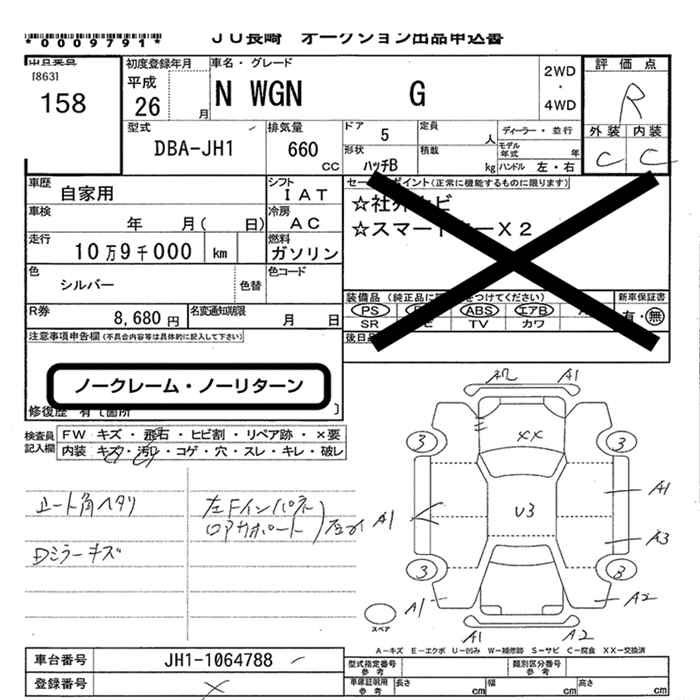 *0009791*
JU長崎 オークション出品申込書
[863]
158
初度登録年月
平成
26 月
車名・グレード
N WGN G
2WD
・
4WD
評価点
R
外装 内装
C C
型式
DBA-JH1
排気量
660
CC
ドア 5
形状
ハッチB
定員 人
積載 kg
ディーラー・並行
モデル年式 年
ハンドル 左・右
車歴
自家用
シフト
IAT
車検
年 月( 日)
冷房
AC
走行
10万9千000 km
燃料
ガソリン
色
シルバー
色替
色コード
R券
8,680円
名変通知期限
月 日
セー ポイント(正常に機能するものに限ります)
☆社外 ビ
☆スマート ーX2
装備品 (純正品に をつけてください)
PS ABS エアB
SR TV カワ
新車保証書
有・無
後日品
注意事項申告欄 (不具合内容等は具体的に記入して下さい)
ノークレーム・ノーリターン
修復歴 有て箇所
検査員
記入欄
FW キズ・飛石・ヒビ割・リペア跡・×要
内装 キズ・汚れ・コゲ・穴・スレ・キレ・破レ
シート角ヘタリ
Dミラーキズ
左Fインパネ
ロアサポート
A2 A1
3 XX 3
A1 U3 A1
A3
3 3
A1 A2
スペア
A1 A2
A-キズ E-エクボ U-凹み W-補修跡 S-サビ C-腐食 XX-交換済
車台番号
JH1-1064788
登録番号
×
型式指定番号
参考
類別区分番号
参考
車庫証明用
参考
長さ cm
幅 cm
高さ cm